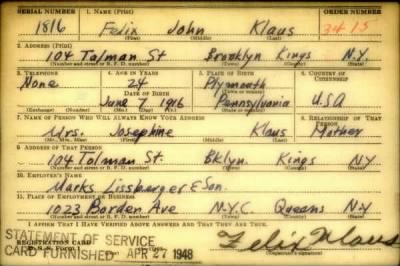 SERIAL NUMBER 1. NAME (Print) ORDER NUMBER
1816 Felix John Klaus 3415
(First) (Middle) (Last)
2. ADDRESS (Print)
104 Tolman St Brooklyn Kings N.Y.
(Number and street or R. F. D. number) (Town) (County) (State)
3. TELEPHONE 4. AGE IN YEARS 5. PLACE OF BIRTH 6. COUNTRY OF CITIZENSHIP
None 24 Plymouth
DATE OF BIRTH (Town or county)
June 7, 1916 Pennsylvania U.S.A
(Exchange) (Number) (Mo.) (Day) (Yr.) (State or country)
7. NAME OF PERSON WHO WILL ALWAYS KNOW YOUR ADDRESS 8. RELATIONSHIP OF THAT PERSON
Mrs. Josephine Klaus Mother
(Mr., Mrs., Miss) (First) (Middle) (Last)
9. ADDRESS OF THAT PERSON
104 Tolman St. Bklyn. Kings N.Y.
(Number and street or R. F. D. number) (Town) (County) (State)
10. EMPLOYER'S NAME
Marks Lissberger & Son.
11. PLACE OF EMPLOYMENT OR BUSINESS
1023 Borden Ave N.Y.C. Queens N.Y
(Number and street or R. F. D. number) (Town) (County) (State)
I AFFIRM THAT I HAVE VERIFIED ABOVE ANSWERS AND THAT THEY ARE TRUE.
STATEMENT OF SERVICE
REGISTRATION CARD
D. S. S. Form 1
CARD FURNISHED APR 27 1948 Felix Klaus
(Registrant's signature)